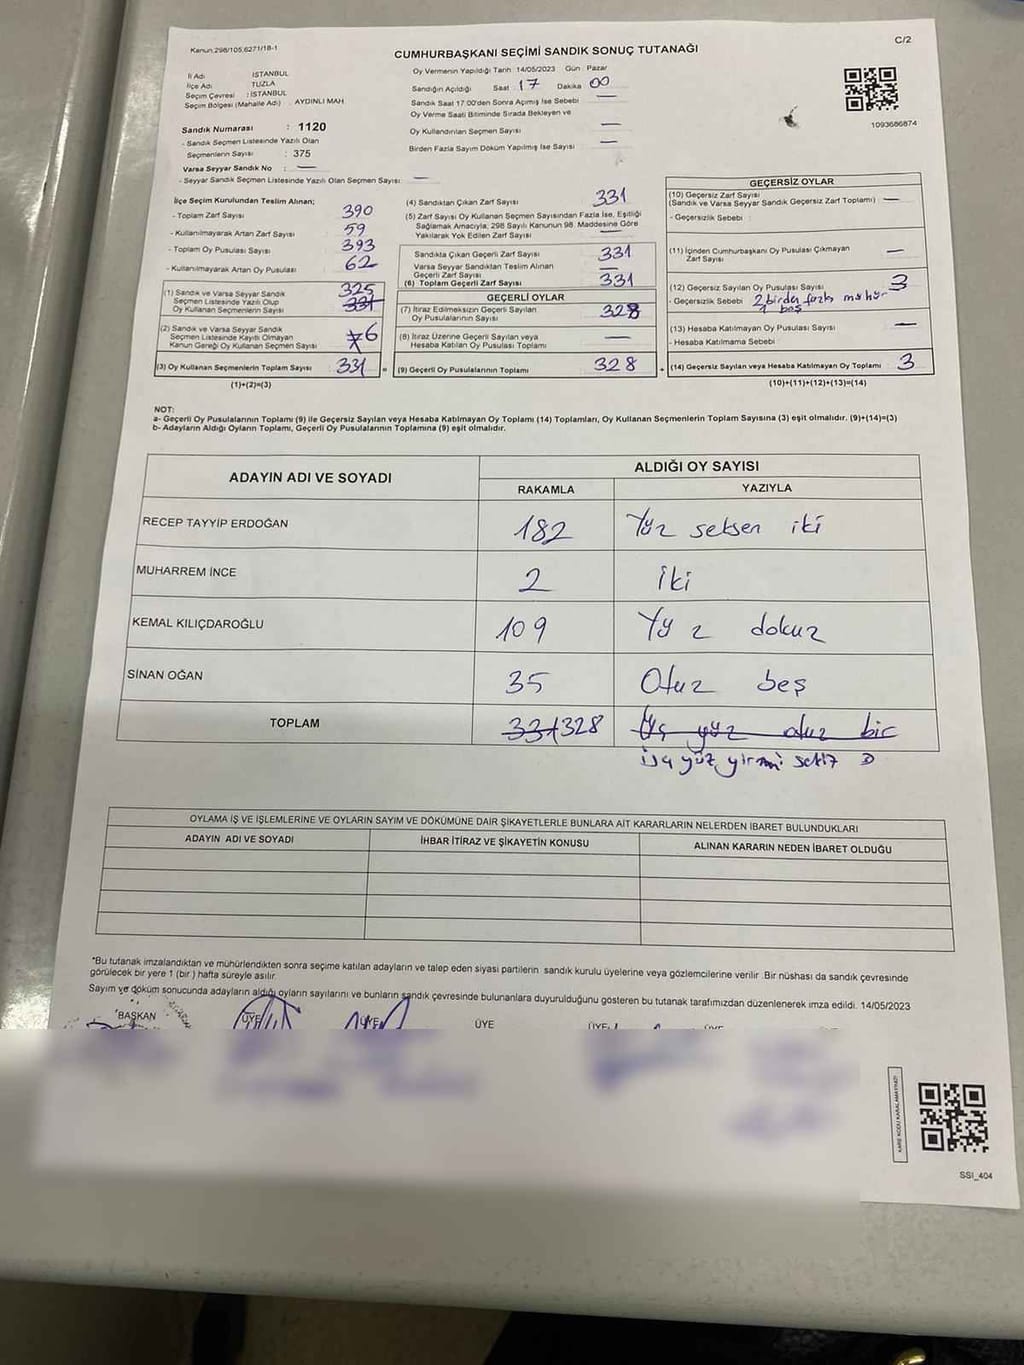 Kanun,298/105,6271/18-1
C/2
CUMHURBAŞKANI SEÇİMİ SANDIK SONUÇ TUTANAĞI
İl Adı İSTANBUL
İlçe Adı TUZLA
Seçim Çevresi : İSTANBUL
Seçim Bölgesi (Mahalle Adı) : AYDINLI MAH
Sandık Numarası : 1120
- Sandık Seçmen Listesinde Yazılı Olan
Seçmenlerin Sayısı : 375
Varsa Seyyar Sandık No : —
- Seyyar Sandık Seçmen Listesinde Yazılı Olan Seçmen Sayısı: —
Oy Vermenin Yapıldığı Tarih 14/05/2023 Gün : Pazar
Sandığın Açıldığı Saat : 17 Dakika 00
Sandık Saat 17:00'den Sonra Açımış İse Sebebi —
Oy Verme Saati Bitiminde Sırada Bekleyen ve
Oy Kullandırılan Seçmen Sayısı —
Birden Fazla Sayım Döküm Yapılmış İse Sayısı —
1093686874
İlçe Seçim Kurulundan Teslim Alınan;
- Toplam Zarf Sayısı 390
- Kullanılmayarak Artan Zarf Sayısı 59
- Toplam Oy Pusulası Sayısı 393
- Kullanılmayarak Artan Oy Pusulası 62
(1) Sandık ve Varsa Seyyar Sandık 325
Seçmen Listesinde Yazılı Olup 331
Oy Kullanan Seçmenlerin Sayısı
(2) Sandık ve Varsa Seyyar Sandık
Seçmen Listesinde Kayıtlı Olmayan 6
Kanun Gereği Oy Kullanan Seçmen Sayısı
(3) Oy Kullanan Seçmenlerin Toplam Sayısı 331 =
(1)+(2)=(3)
(4) Sandıktan Çıkan Zarf Sayısı 331
(5) Zarf Sayısı Oy Kullanan Seçmen Sayısından Fazla İse, Eşitliği
Sağlamak Amacıyla; 298 Sayılı Kanunun 98. Maddesine Göre
Yakılarak Yok Edilen Zarf Sayısı —
Sandıkta Çıkan Geçerli Zarf Sayısı 331
Varsa Seyyar Sandıktan Teslim Alınan
Geçerli Zarf Sayısı —
(6) Toplam Geçerli Zarf Sayısı 331
GEÇERLİ OYLAR
(7) İtiraz Edilmeksizin Geçerli Sayılan 328
Oy Pusulalarının Sayısı
(8) İtiraz Üzerine Geçerli Sayılan veya —
Hesaba Katılan Oy Pusulası Toplamı
(9) Geçerli Oy Pusulalarının Toplamı 328 +
GEÇERSİZ OYLAR
(10) Geçersiz Zarf Sayısı
(Sandık ve Varsa Seyyar Sandık Geçersiz Zarf Toplamı) —
- Geçersizlik Sebebi :
(11) İçinden Cumhurbaşkanı Oy Pusulası Çıkmayan —
Zarf Sayısı
(12) Geçersiz Sayılan Oy Pusulası Sayısı 3
- Geçersizlik Sebebi : 2 birden fazla mühür
1 boş
(13) Hesaba Katılmayan Oy Pusulası Sayısı —
- Hesaba Katılmama Sebebi :
(14) Geçersiz Sayılan veya Hesaba Katılmayan Oy Toplamı 3
(10)+(11)+(12)+(13)=(14)
NOT:
a- Geçerli Oy Pusulalarının Toplamı (9) ile Geçersiz Sayılan veya Hesaba Katılmayan Oy Toplamı (14) Toplamları, Oy Kullanan Seçmenlerin Toplam Sayısına (3) eşit olmalıdır. (9)+(14)=(3)
b- Adayların Aldığı Oyların Toplamı, Geçerli Oy Pusulalarının Toplamına (9) eşit olmalıdır.
ADAYIN ADI VE SOYADI
ALDIĞI OY SAYISI
RAKAMLA YAZIYLA
RECEP TAYYİP ERDOĞAN 182 Yüz seksen iki
MUHARREM İNCE 2 iki
KEMAL KILIÇDAROĞLU 109 Yüz dokuz
SİNAN OĞAN 35 Otuz beş
TOPLAM 331 328 Üç yüz otuz bir
üç yüz yirmi sekiz
OYLAMA İŞ VE İŞLEMLERİNE VE OYLARIN SAYIM VE DÖKÜMÜNE DAİR ŞİKAYETLERLE BUNLARA AİT KARARLARIN NELERDEN İBARET BULUNDUKLARI
ADAYIN ADI VE SOYADI İHBAR İTİRAZ VE ŞİKAYETİN KONUSU ALINAN KARARIN NEDEN İBARET OLDUĞU
*Bu tutanak imzalandıktan ve mühürlendikten sonra seçime katılan adayların ve talep eden siyasi partilerin sandık kurulu üyelerine veya gözlemcilerine verilir .Bir nüshası da sandık çevresinde
görülecek bir yere 1 (bir ) hafta süreyle asılır.
Sayım ve döküm sonucunda adayların aldığı oyların sayılarını ve bunların sandık çevresinde bulunanlara duyurulduğunu gösteren bu tutanak tarafımızdan düzenlenerek imza edildi. 14/05/2023
BAŞKAN ÜYE ÜYE ÜYE ÜYE ÜYE
KARE KODU KARALAMAYINIZ!
SSI_404